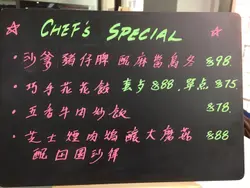 ☆ CHEF'S SPECIAL ☆
• 沙爹豬仔脾配麻醬烏冬 $98
• 巧手花花飯 套步 $88, 單点 $75
• 五香牛肉炒飯 $78
• 芝士煙肉焗釀大磨菇 $88
配田園沙律